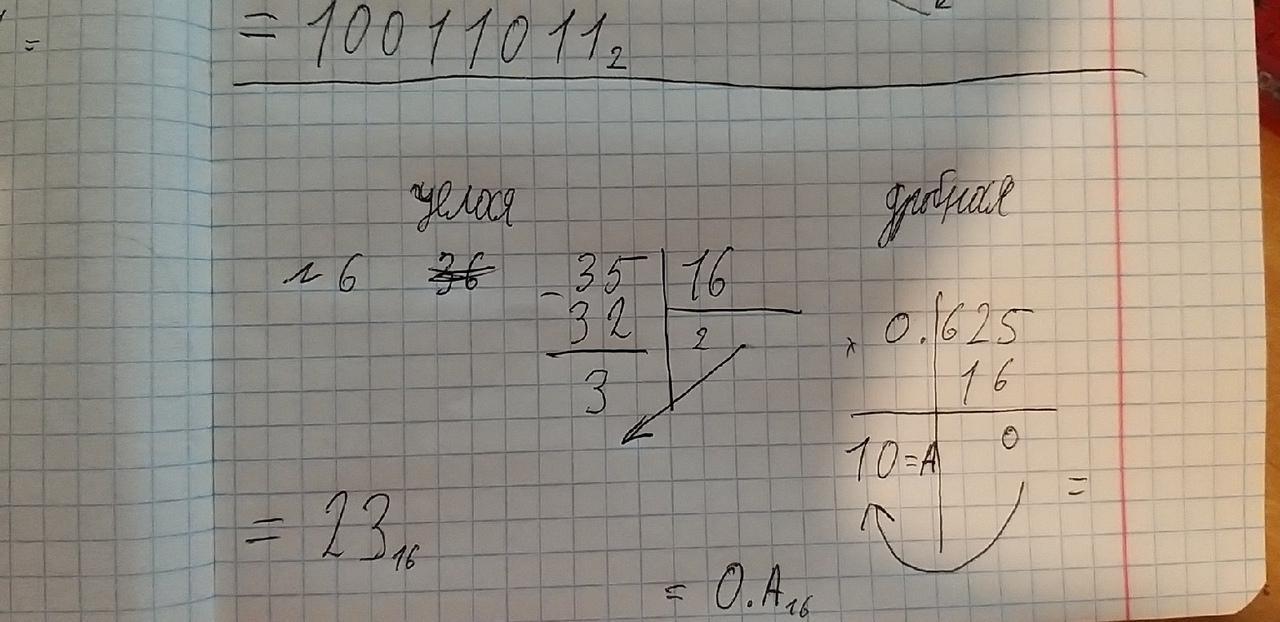 =
= 10011011₂
целая дробная
№6 36 - 35 | 16
32 2
3
× 0.|625
16
10=A 0
=
= 23₁₆
= 0.A₁₆